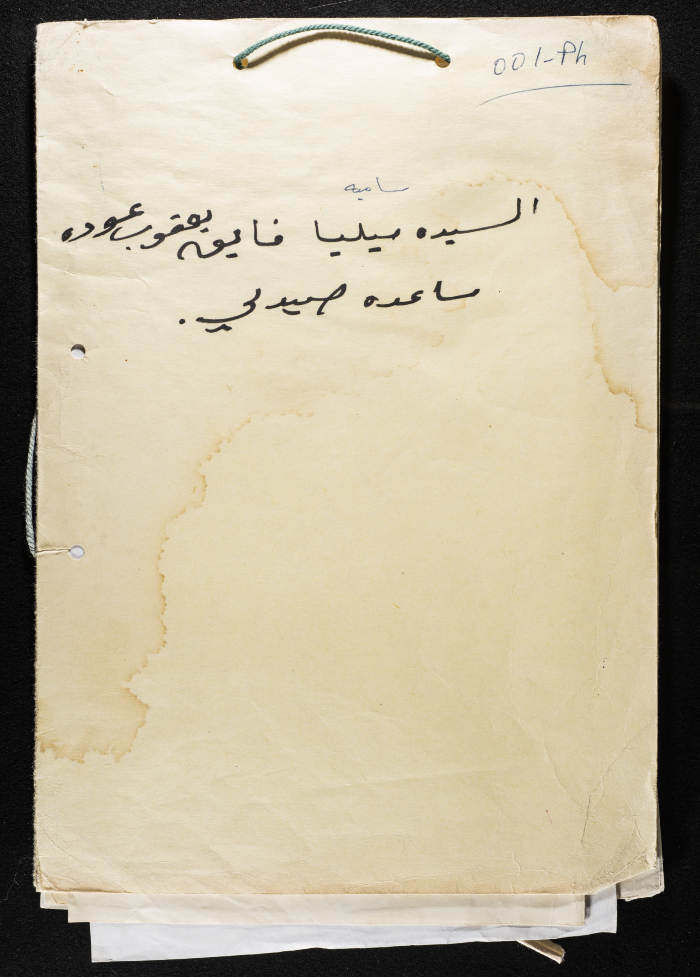 001-Ph
ساميه
السيده ميليا فايق يعقوب عوده
مساعده صيدلي .